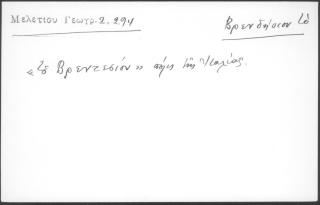 Μελετίου Γεωγρ. 2. 294
Βρενδήσιον τὸ
«τὸ Βρεντεσιόν» πόλις τῆς Ἰταλίας.